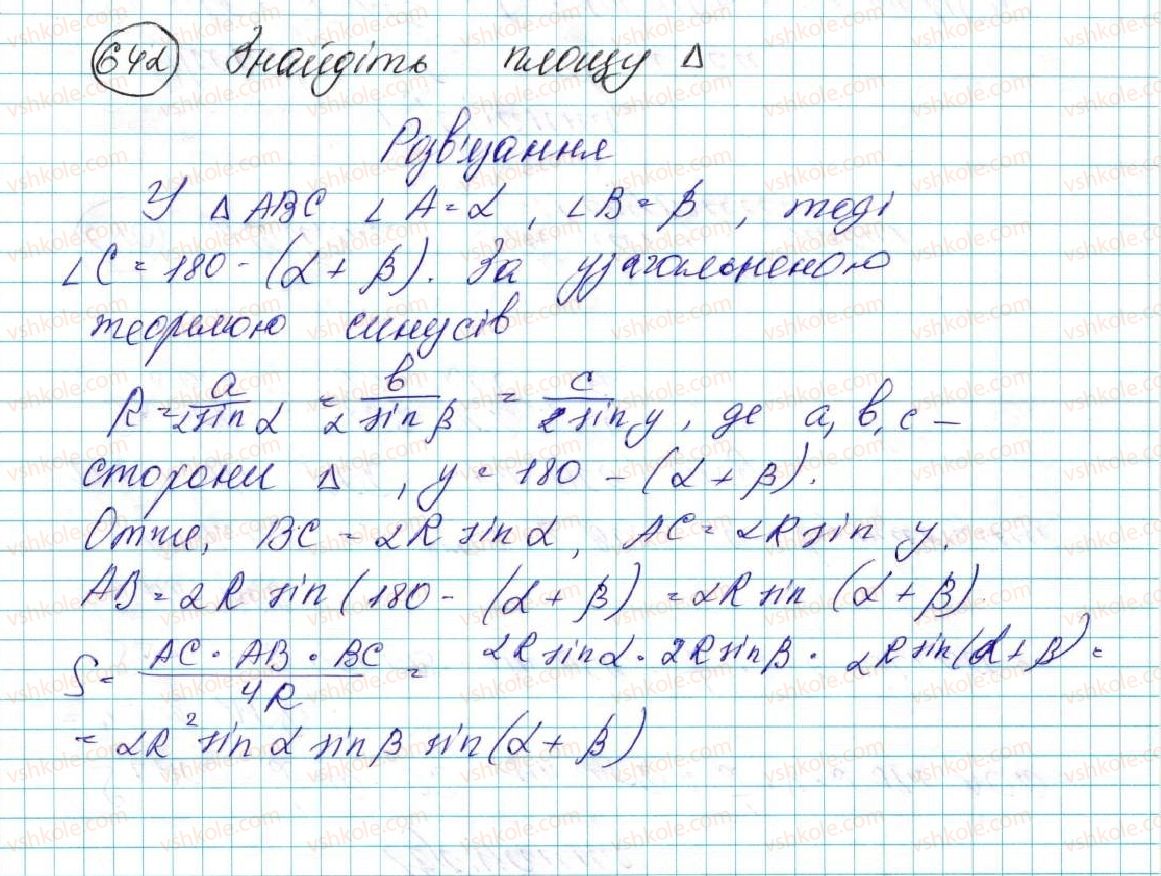 642 Знайдіть площу Δ
Розв'язання
У Δ ABC ∠A = α, ∠B = β, тоді
∠C = 180 - (α + β). За узагальненою
теоремою синусів
R = a/2sinα = b/2sinβ = c/2siny, де a, b, c –
сторони Δ, y = 180 – (α + β).
Отже, BC = 2R sinα, AC = 2R sin y.
AB = 2R sin(180 - (α + β) = 2R sin (α + β).
S = AC · AB · BC/4R = 2R sinα · 2R sinβ · 2R sin(α + β) =
= 2R² sinα sinβ sin(α + β)